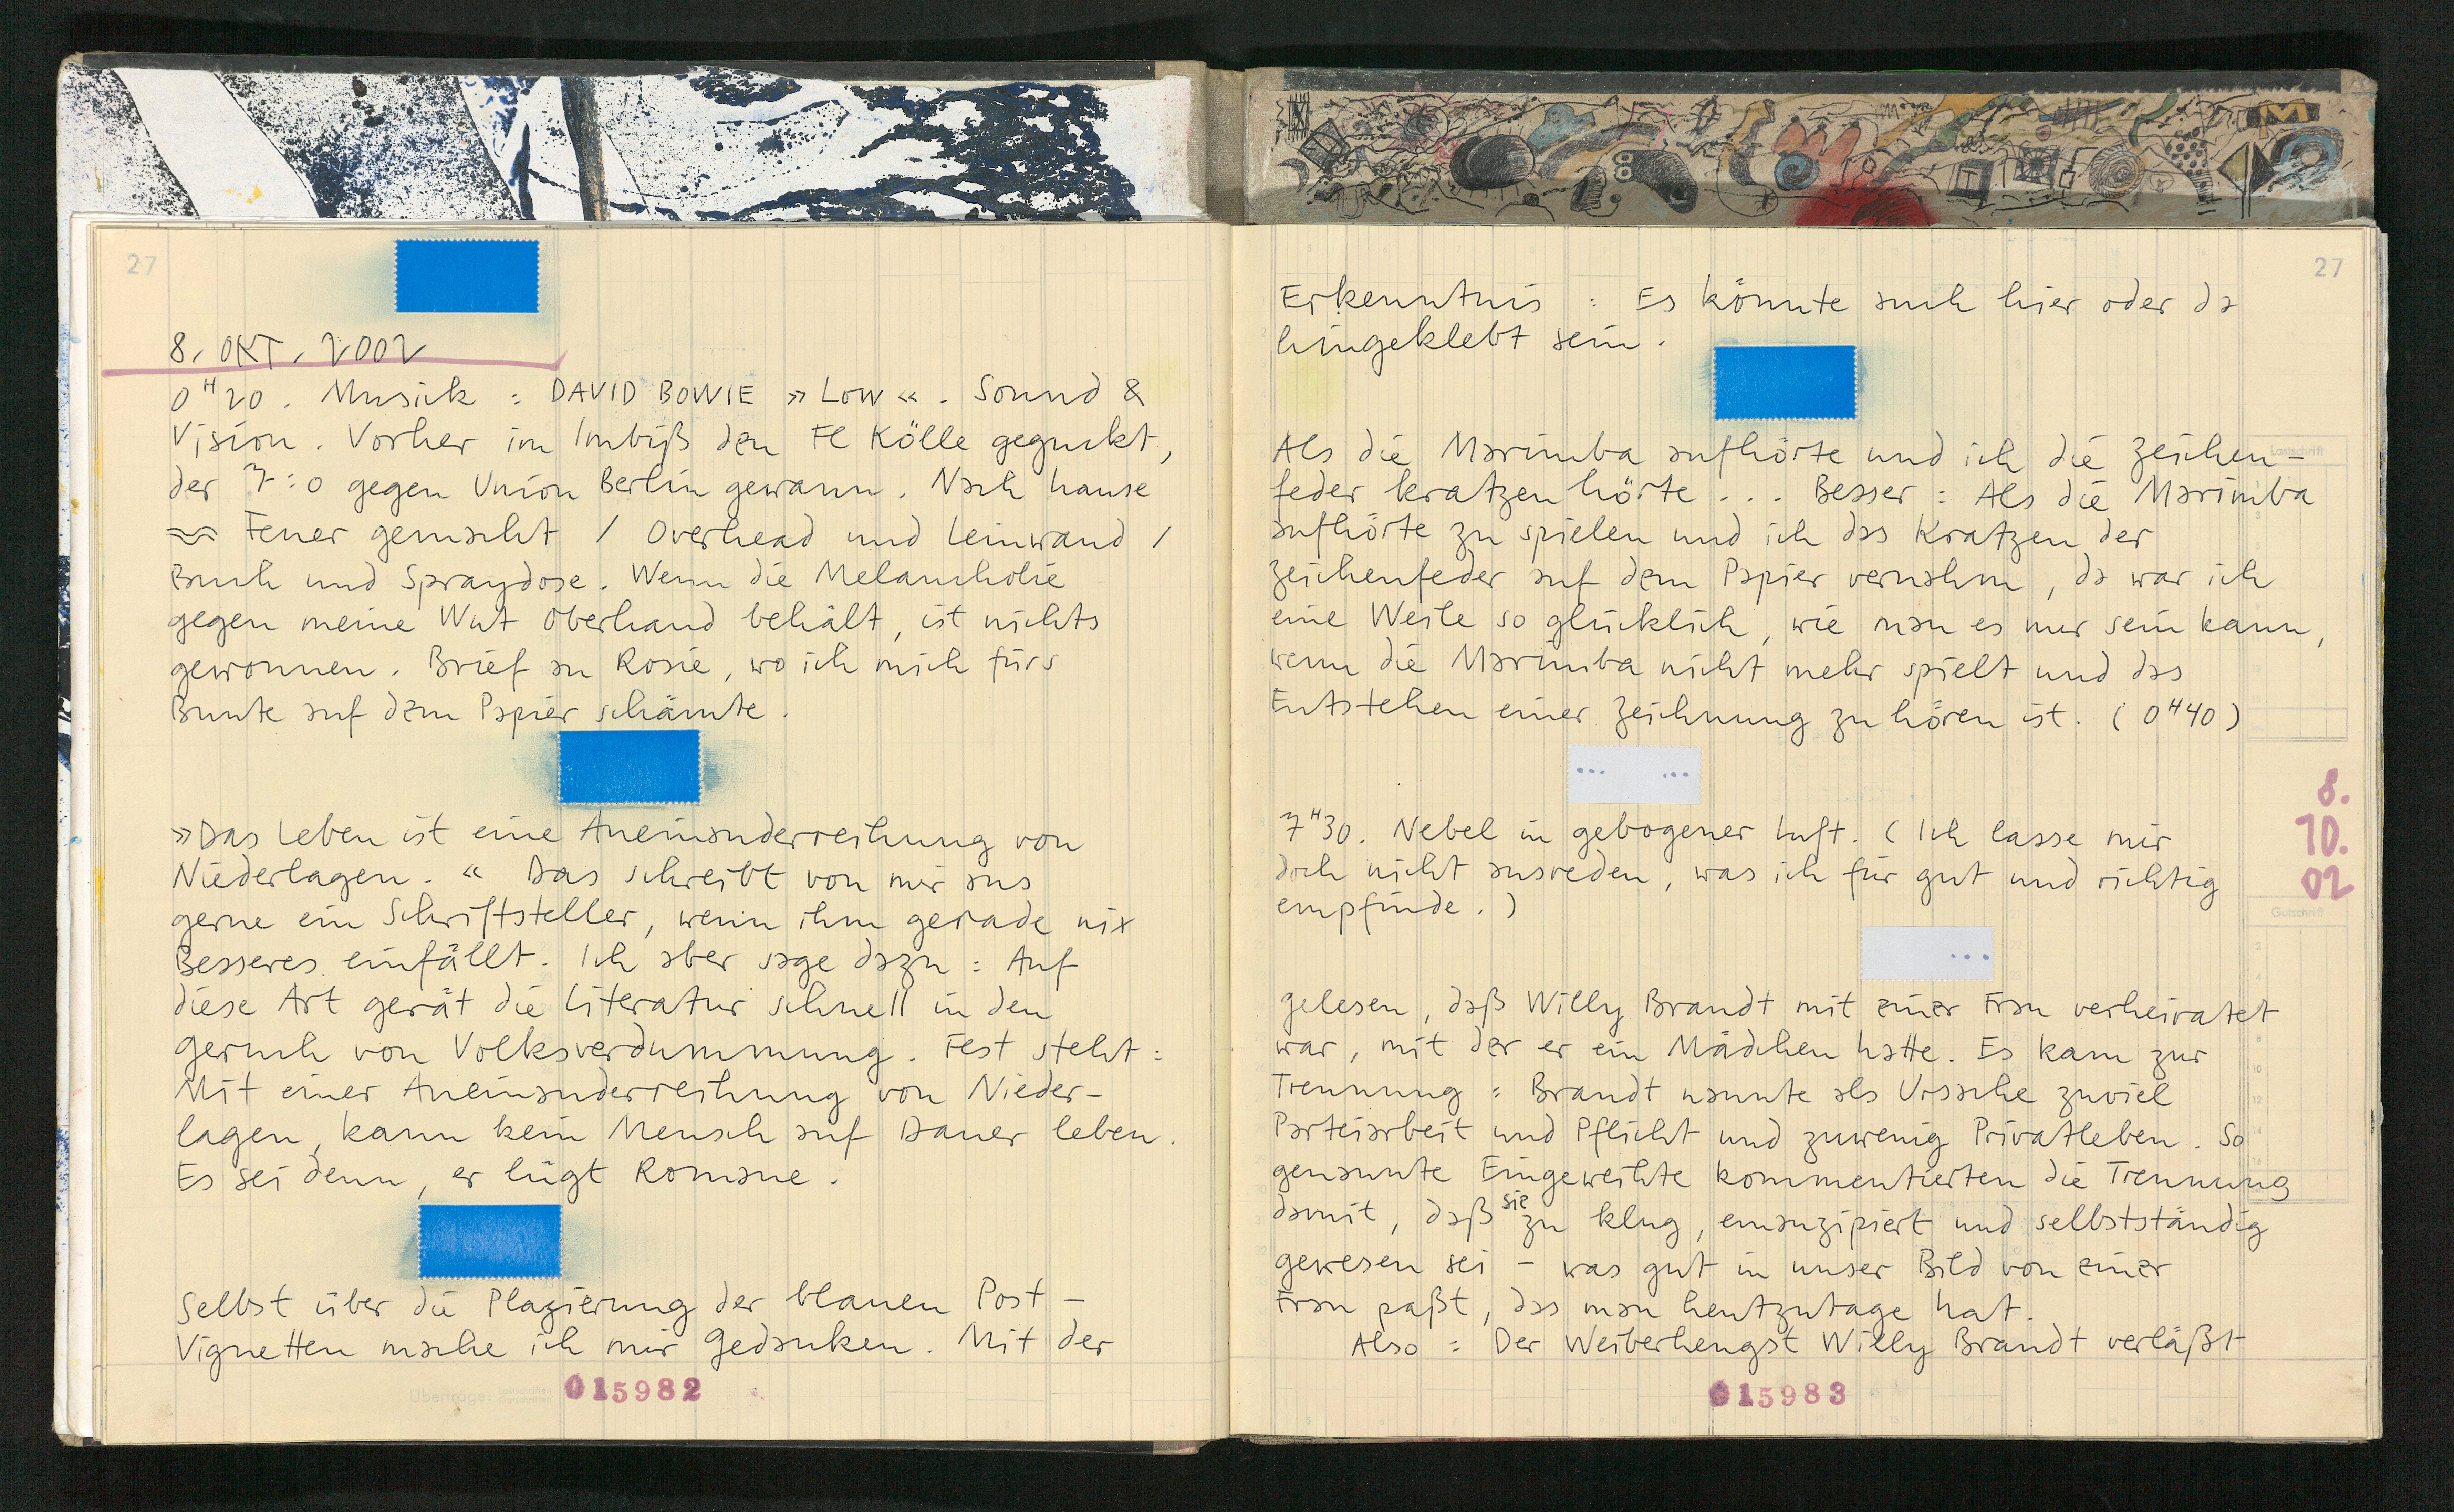 27
8. OKT. 2002
0H20. Musik : DAVID BOWIE » LOW «. Sound &
Vision. Vorher im Imbiß den FC Kölle geguckt,
der 7:0 gegen Union Berlin gewann. Nach hause
Feuer gemacht / Overhead und Leinwand /
Buch und Spraydose. Wenn die Melancholie
gegen meine Wut Oberhand behält, ist nichts
gewonnen. Brief an Rosie, wo ich mich fürs
Bunte auf dem Papier schämte.
»Das Leben ist eine Aneinanderreihung von
Niederlagen. « Das schreibt von mir aus
gerne ein Schriftsteller, wenn ihm gerade nix
Besseres einfällt. Ich aber sage dazu : Auf
diese Art gerät die Literatur schnell in den
Geruch von Volksverdummung. Fest steht :
Mit einer Aneinanderreihung von Nieder-
lagen, kann kein Mensch auf Dauer leben.
Es sei denn, er lügt Romane.
Selbst über die Plazierung der blauen Post-
Vignetten mache ich mir Gedanken. Mit der
Überträge:
015982
27
Erkenntnis : Es könnte auch hier oder da
hingeklebt sein.
Als die Marimba aufhörte und ich die Zeichen-
feder kratzen hörte ... Besser : Als die Marimba
aufhörte zu spielen und ich das Kratzen der
Zeichenfeder auf dem Papier vernahm, da war ich
eine Weile so glücklich, wie man es nur sein kann,
wenn die Marimba nicht mehr spielt und das
Entstehen einer Zeichnung zu hören ist. (0H40)
... ...
7H30. Nebel in gebogener Luft. (Ich lasse mir
doch nicht ausreden, was ich für gut und richtig
empfinde.)
...
gelesen, daß Willy Brandt mit einer Frau verheiratet
war, mit der er ein Mädchen hatte. Es kam zur
Trennung : Brandt nannte als Ursache zuviel
Parteiarbeit und Pflicht und zuwenig Privatleben. So
genannte Eingeweihte kommentierten die Trennung
damit, daß sie zu klug, emanzipiert und selbstständig
gewesen sei – was gut in unser Bild von einer
Frau paßt, das man heutzutage hat.
Also : Der Weiberhengst Willy Brandt verläßt
015983
Lastschrift
8.
10.
02
Gutschrift